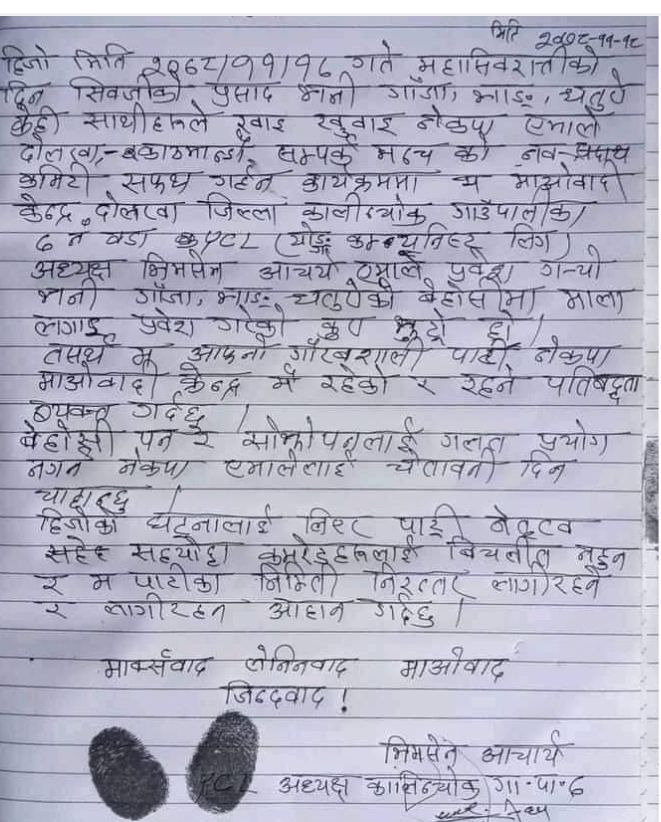 मिति २०७८-११-१८
हिजो मिति २०७८/११/१८ गते महासिवरात्रीको
दिन सिवजीको प्रसाद भनी गाँजा, भाङ्, धतुऐ
केही साथीहरूले ख्वाइ नेकपा एमाले
दोलखा-काठमान्डौ सम्पर्क मन्च को नव-
कमिटी सफथ गर्हन कार्यक्रममा म माओवादी
केन्द्र दोलखा जिल्ला कालीन्चोक गाउँपालीका
६ न वडा YCL (योङ्ग कम्यूनिस्ट् लिग)
अध्यक्ष भिमसेन आचार्य एमाले प्रवेश गर्‍यो
भनी गाँजा, भाङ्: धतुऐको बेहोसीमा माला
लगाइ प्रवेश गरेको कुरा झुट्रो हो।
तसर्थ म आफ्नो गौरवशाली पार्टी नेकपा
माओवादी केन्द्र मै रहेको र रहने पतिबद्दता
व्यक्त गर्दछु।
बेहोसी पन र सोझोपनलाई गलत प्रयोग
नगर्न नेकपा एमालेलाई चेतावनी दिन
चाहान्छु।
हिजोको घट्नालाई लिएर पार्टी नेतृत्व
सहयोद्दा कमरेड्हरूलाई बिचलीत नहुन
र म पार्टीका निम्ती निरन्तर लागीरहने
र लागीरहन आहान गर्दछु।
मार्क्सवाद लेनिनवाद माओवाद
जिन्दवाद !
भिमसेन आचार्य
YCL अध्यक्ष कालिन्चोक गा.पा.६